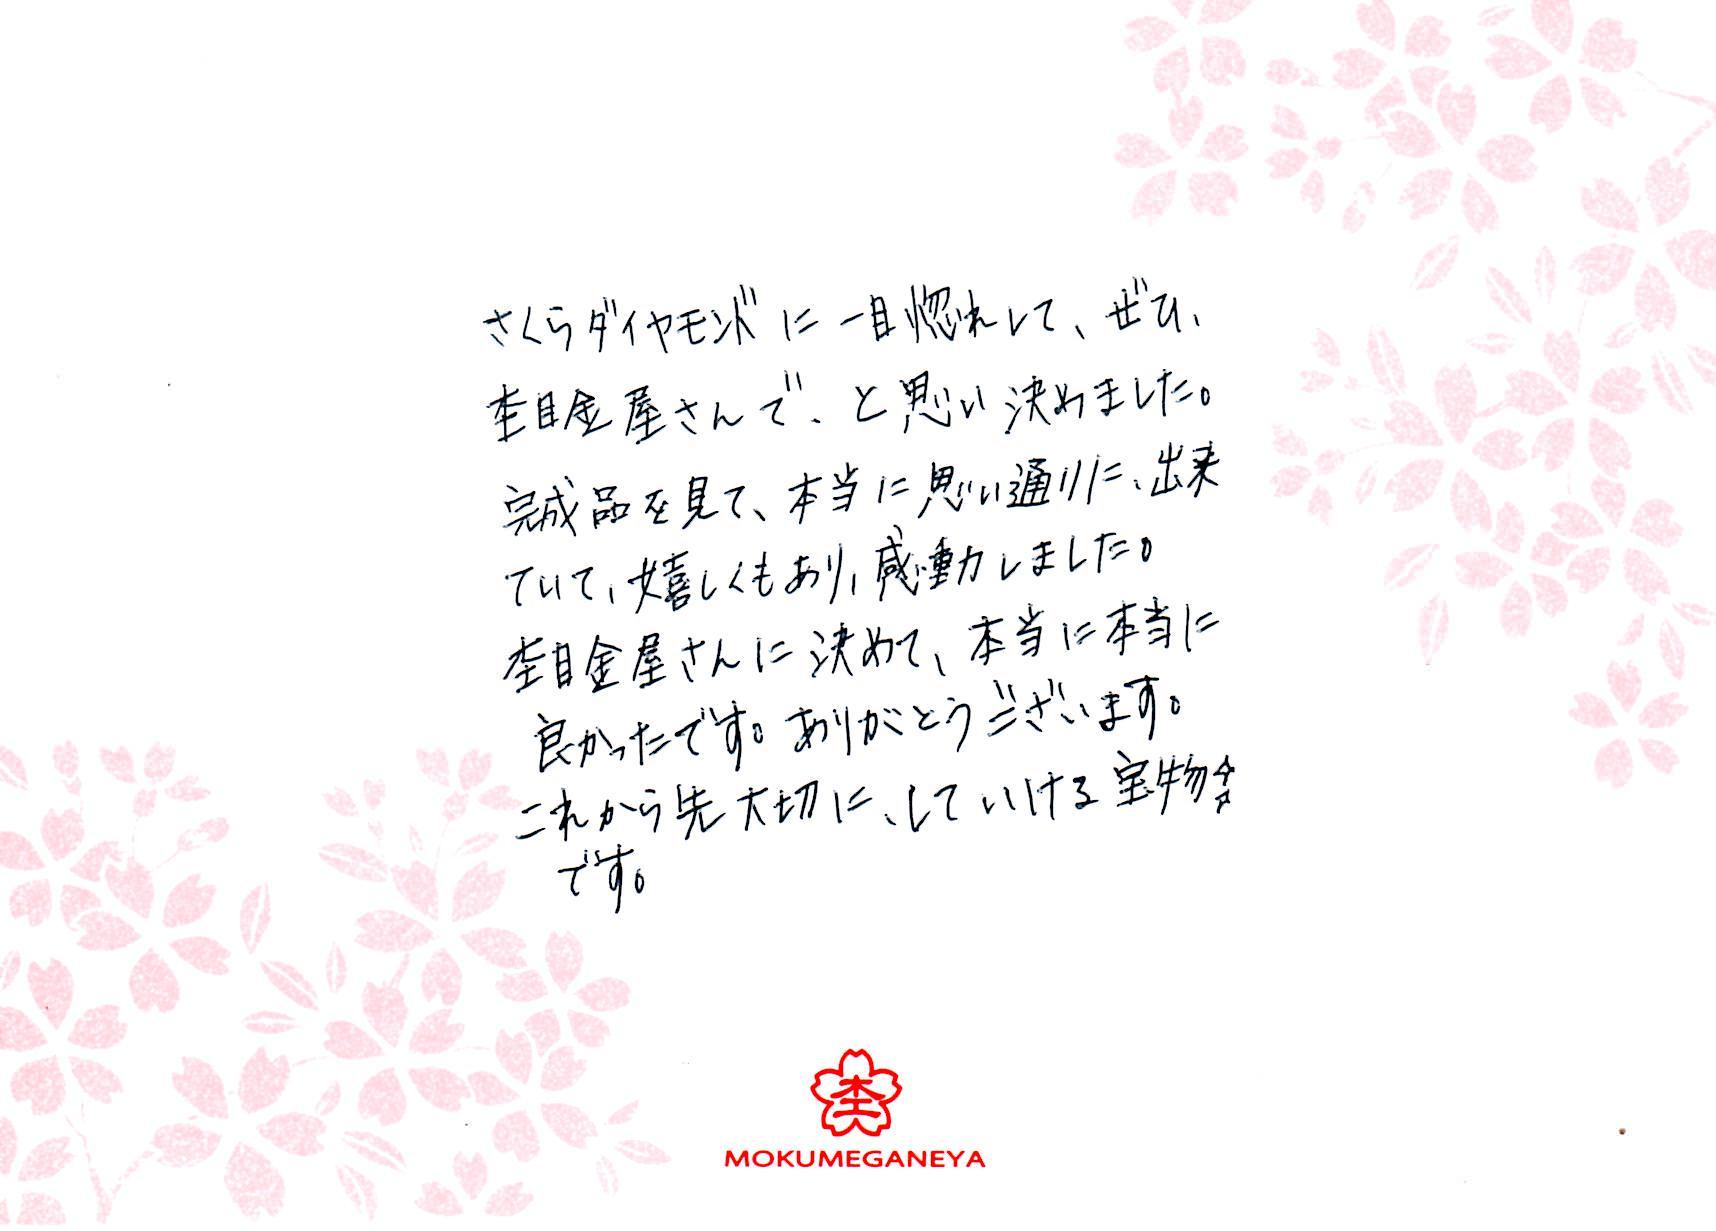 さくらダイヤモンドに一目惚れして、ぜひ、
杢目金屋さんで、と思い決めました。
完成品を見て、本当に思い通りに、出来
ていて、嬉しくもあり、感動しました。
杢目金屋さんに決めて、本当に本当に
良かったです。ありがとうございます。
これから先大切に、していける宝物☆
です。
杢
MOKUMEGANEYA